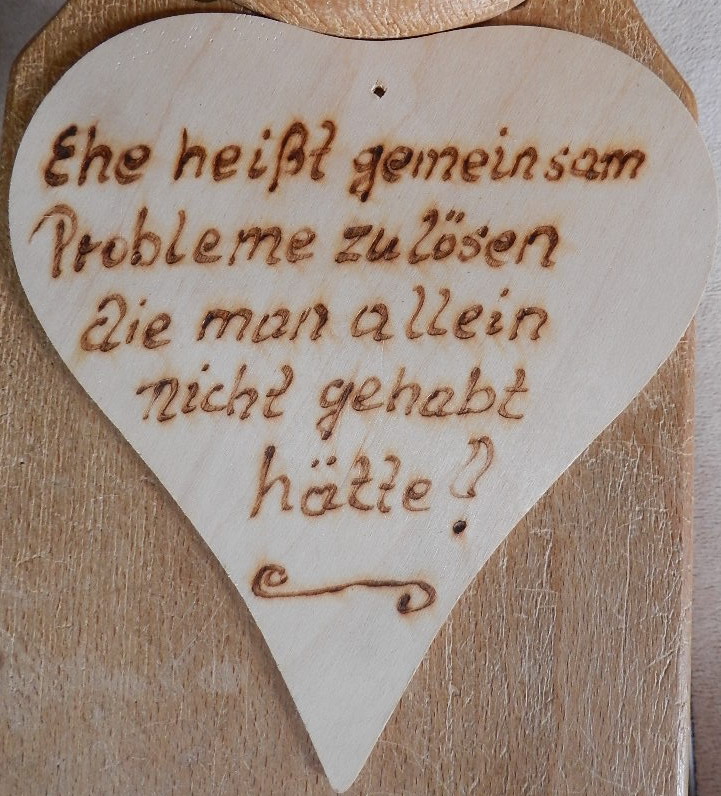 Ehe heißt gemeinsam
Probleme zu lösen
die man allein
nicht gehabt
hätte!